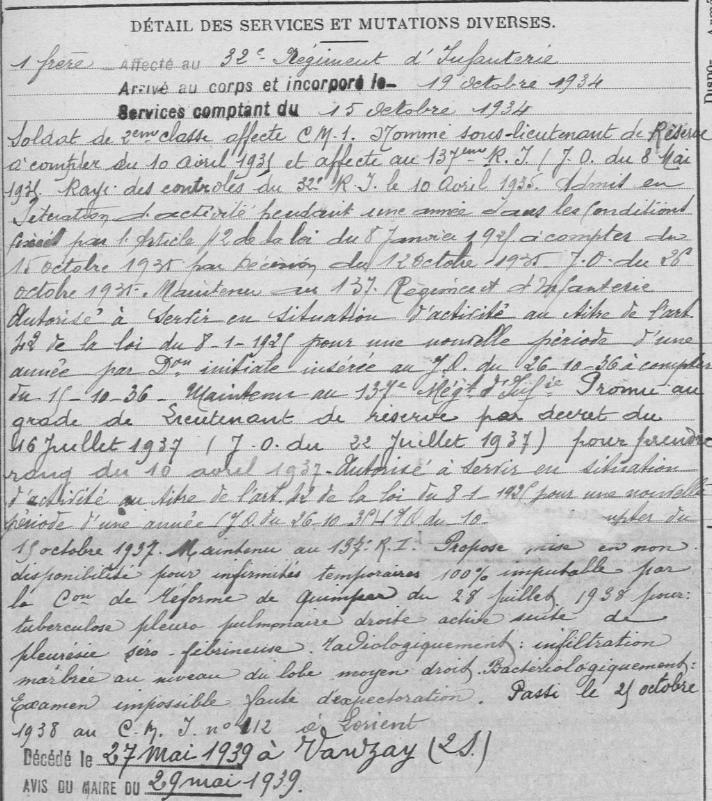 DÉTAIL DES SERVICES ET MUTATIONS DIVERSES.
1 frère Affecté au 32e Régiment d'Infanterie
Arrivé au corps et incorporé le 19 octobre 1934
Services comptant du 15 octobre 1934
Soldat de 2eme classe affecté C.M.1. Nommé sous-lieutenant de Réserve
à compter du 10 avril 1935 et affecté au 137ème R.I. (J.O. du 8 Mai
1935 Rayé des contrôles du 32e R.I. le 10 Avril 1935. Admis en
d'activité pendant une année dans les Conditions
par l'Article 42 de la loi du 8 Janvier 1925 à compter du
15 octobre 1935 par décision du 12 Octobre 1935 J.O. du 26
octobre 1935. Maintenu au 137 Régiment d'Infanterie
Autorisé à servir en situation d'activité au titre de l'art.
42 de la loi du 8-1-1925 pour une nouvelle période d'une
année par Don initiale insérée au J.O. du 26-10-36 à compter
du 15-10-36 - Maintenu au 137e Régt d'Infie Promu au
grade de Lieutenant de réserve par décret du
16 Juillet 1937 (J.O. du 22 Juillet 1937) pour prendre
rang du 10 avril 1937. Autorisé à servir en situation
d'activité au titre de l'art. 42 de la loi du 8-1-1925 pour une nouvelle
période d'une année (J.O. du 26-10 du 10 compter du
15 octobre 1937. Maintenu au 137e R.I. Proposé mise en non
disponibilité pour infirmités temporaires 100% imputable par
la Con de Réforme de Quimper du 28 juillet 1938 pour:
tuberculose pleuro pulmonaire droite active suite de
pleuresie sero-fibrineuse. Radiologiquement: infiltration
marbrée au niveau du lobe moyen droit. Bactériologiquement:
Examen impossible faute d'expectoration. Passé le 25 octobre
1938 au C.M.I. n° 112 à Lorient
Décédé le 27 Mai 1939 à Vanzay (2S.)
AVIS DU MAIRE DU 29 mai 1939.